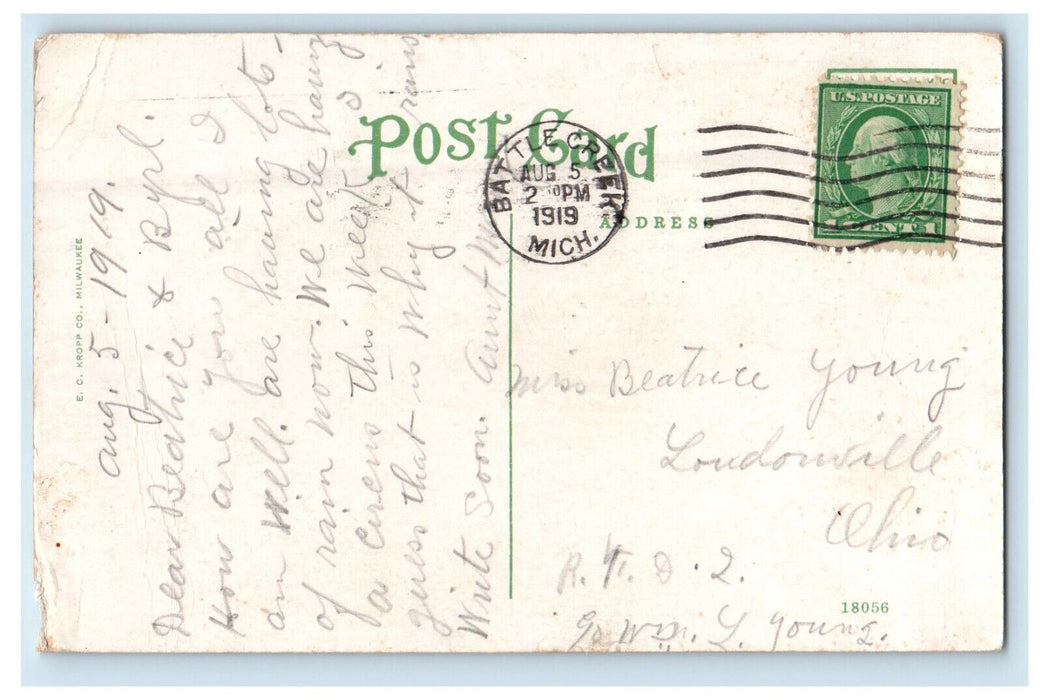 POST CARD
ADDRESS
E. C. KROPP CO., MILWAUKEE
BATTLE CREEK
AUG 5
2 PM
1919
MICH.
U.S. POSTAGE
1 CENT 1
Aug. 5 - 1919.
Dear Beatrice & Byrl.
How are you all I
am well. are having lots -
of rain now. We are having
a circus this week I
guess that is why it rains.
Write soon. Aunt
Miss Beatrice Young
Loudonville
Ohio
R. F. D. 2.
c/o Wm. L. Young.
18056